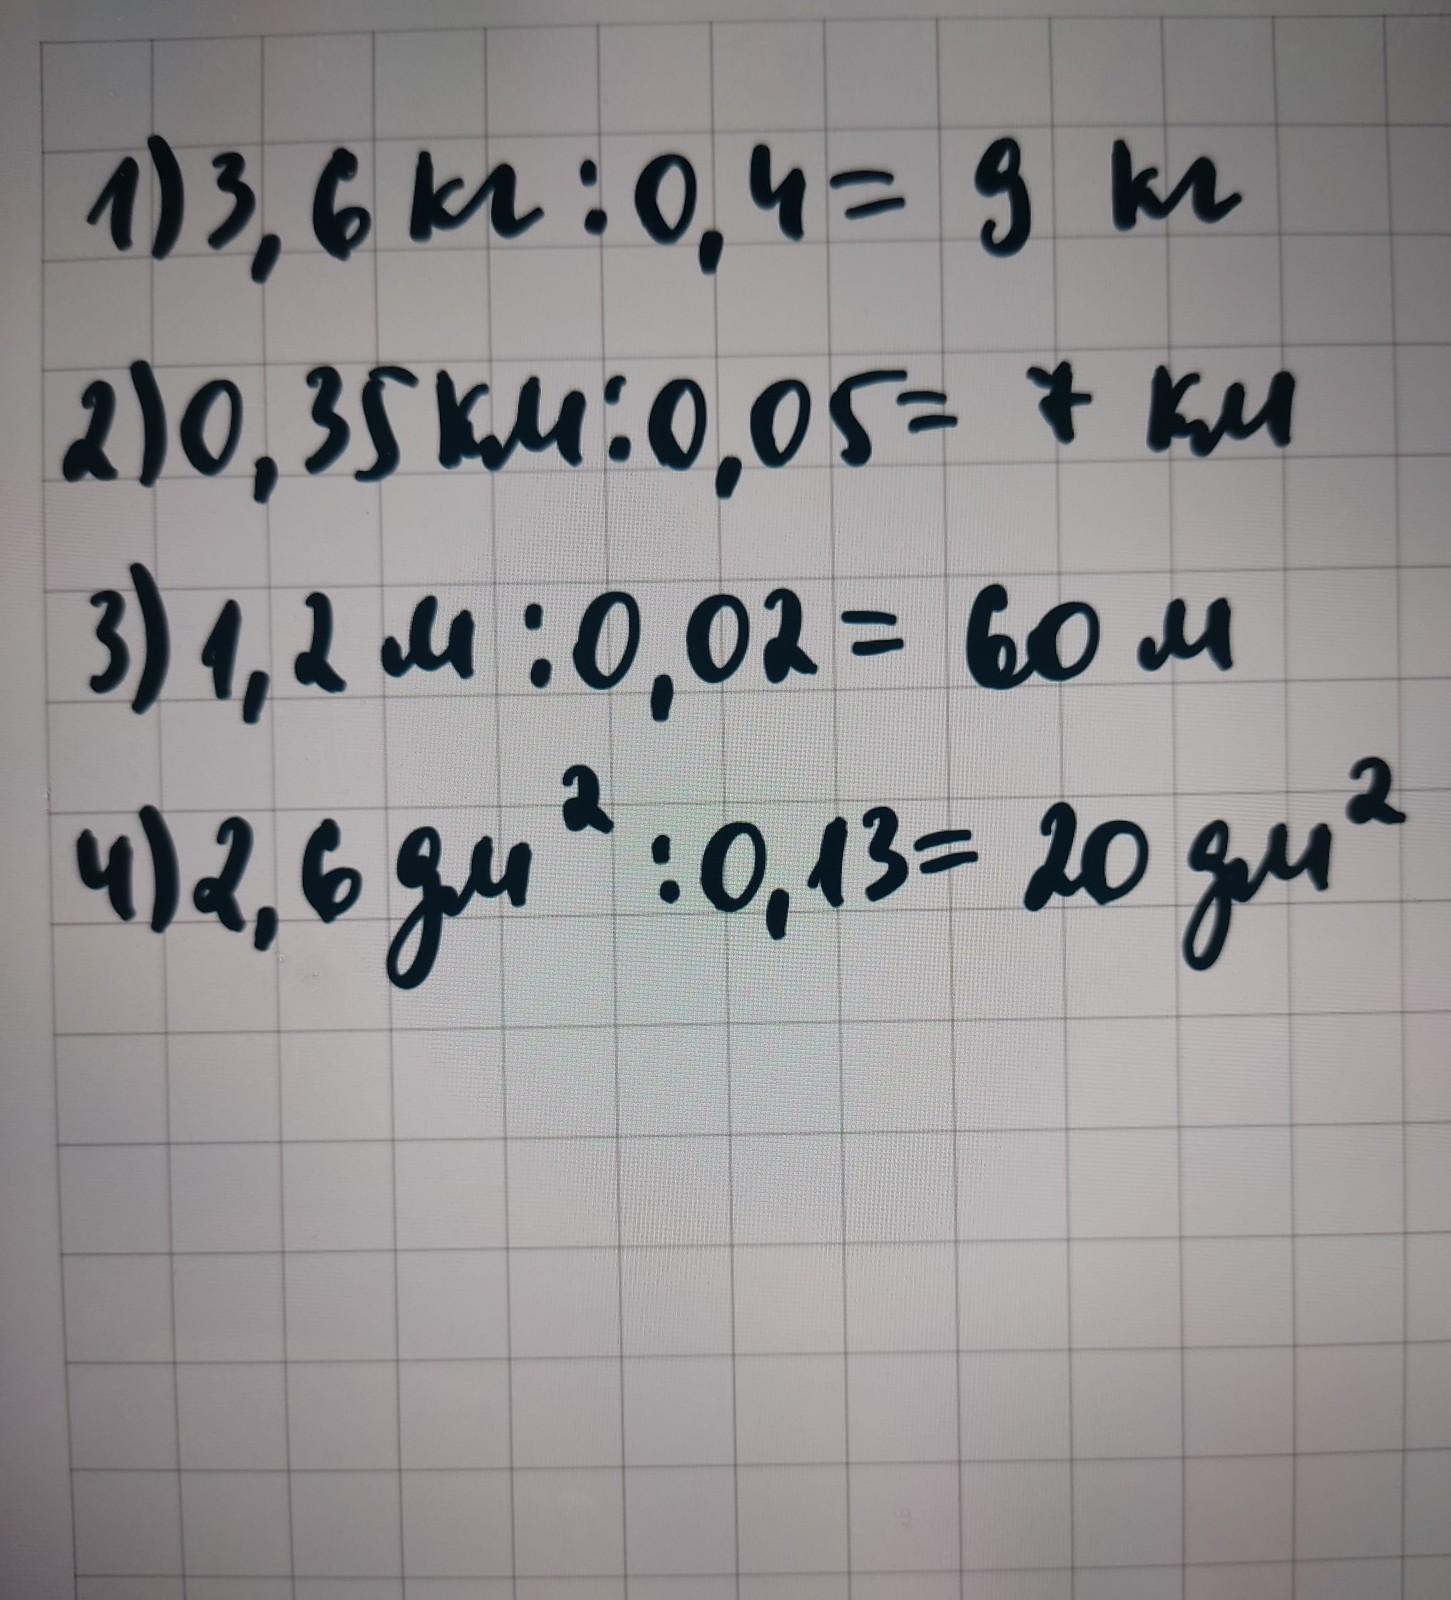 1) 3,6 кг : 0,4 = 9 кг
2) 0,35 км : 0,05 = 7 км
3) 1,2 м : 0,02 = 60 м
4) 2,6 дм² : 0,13 = 20 дм²